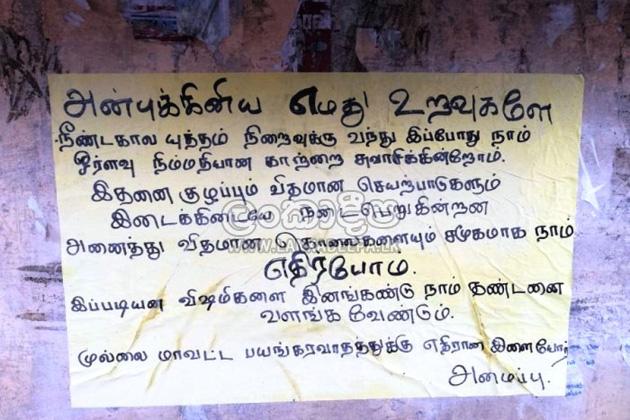 அன்புக்கினிய எமது உறவுகளே
நீண்டகால யுத்தம் நிறைவுக்கு வந்து இப்போது நாம்
சீரளவு நிம்மதியான காற்றை சுவாசிக்கின்றோம்.
இதனை குழப்பும் விதமான செயற்பாடுகளும்
இடைக்கிடையே நடைபெறுகின்றன
ලංකාදීප
WWW.LANKADEEPA.LK
அனைத்து விதமான கொலைகளையும் சமூகமாக நாம்
எதிர்போம்.
இப்படியன விஷமிகளை இனங்கண்டு நாம் தண்டனை
வளங்க வேண்டும்.
முல்லை மாவட்ட பயங்கரவாதத்துக்கு எதிரான இளையோர்
அமைப்பு.